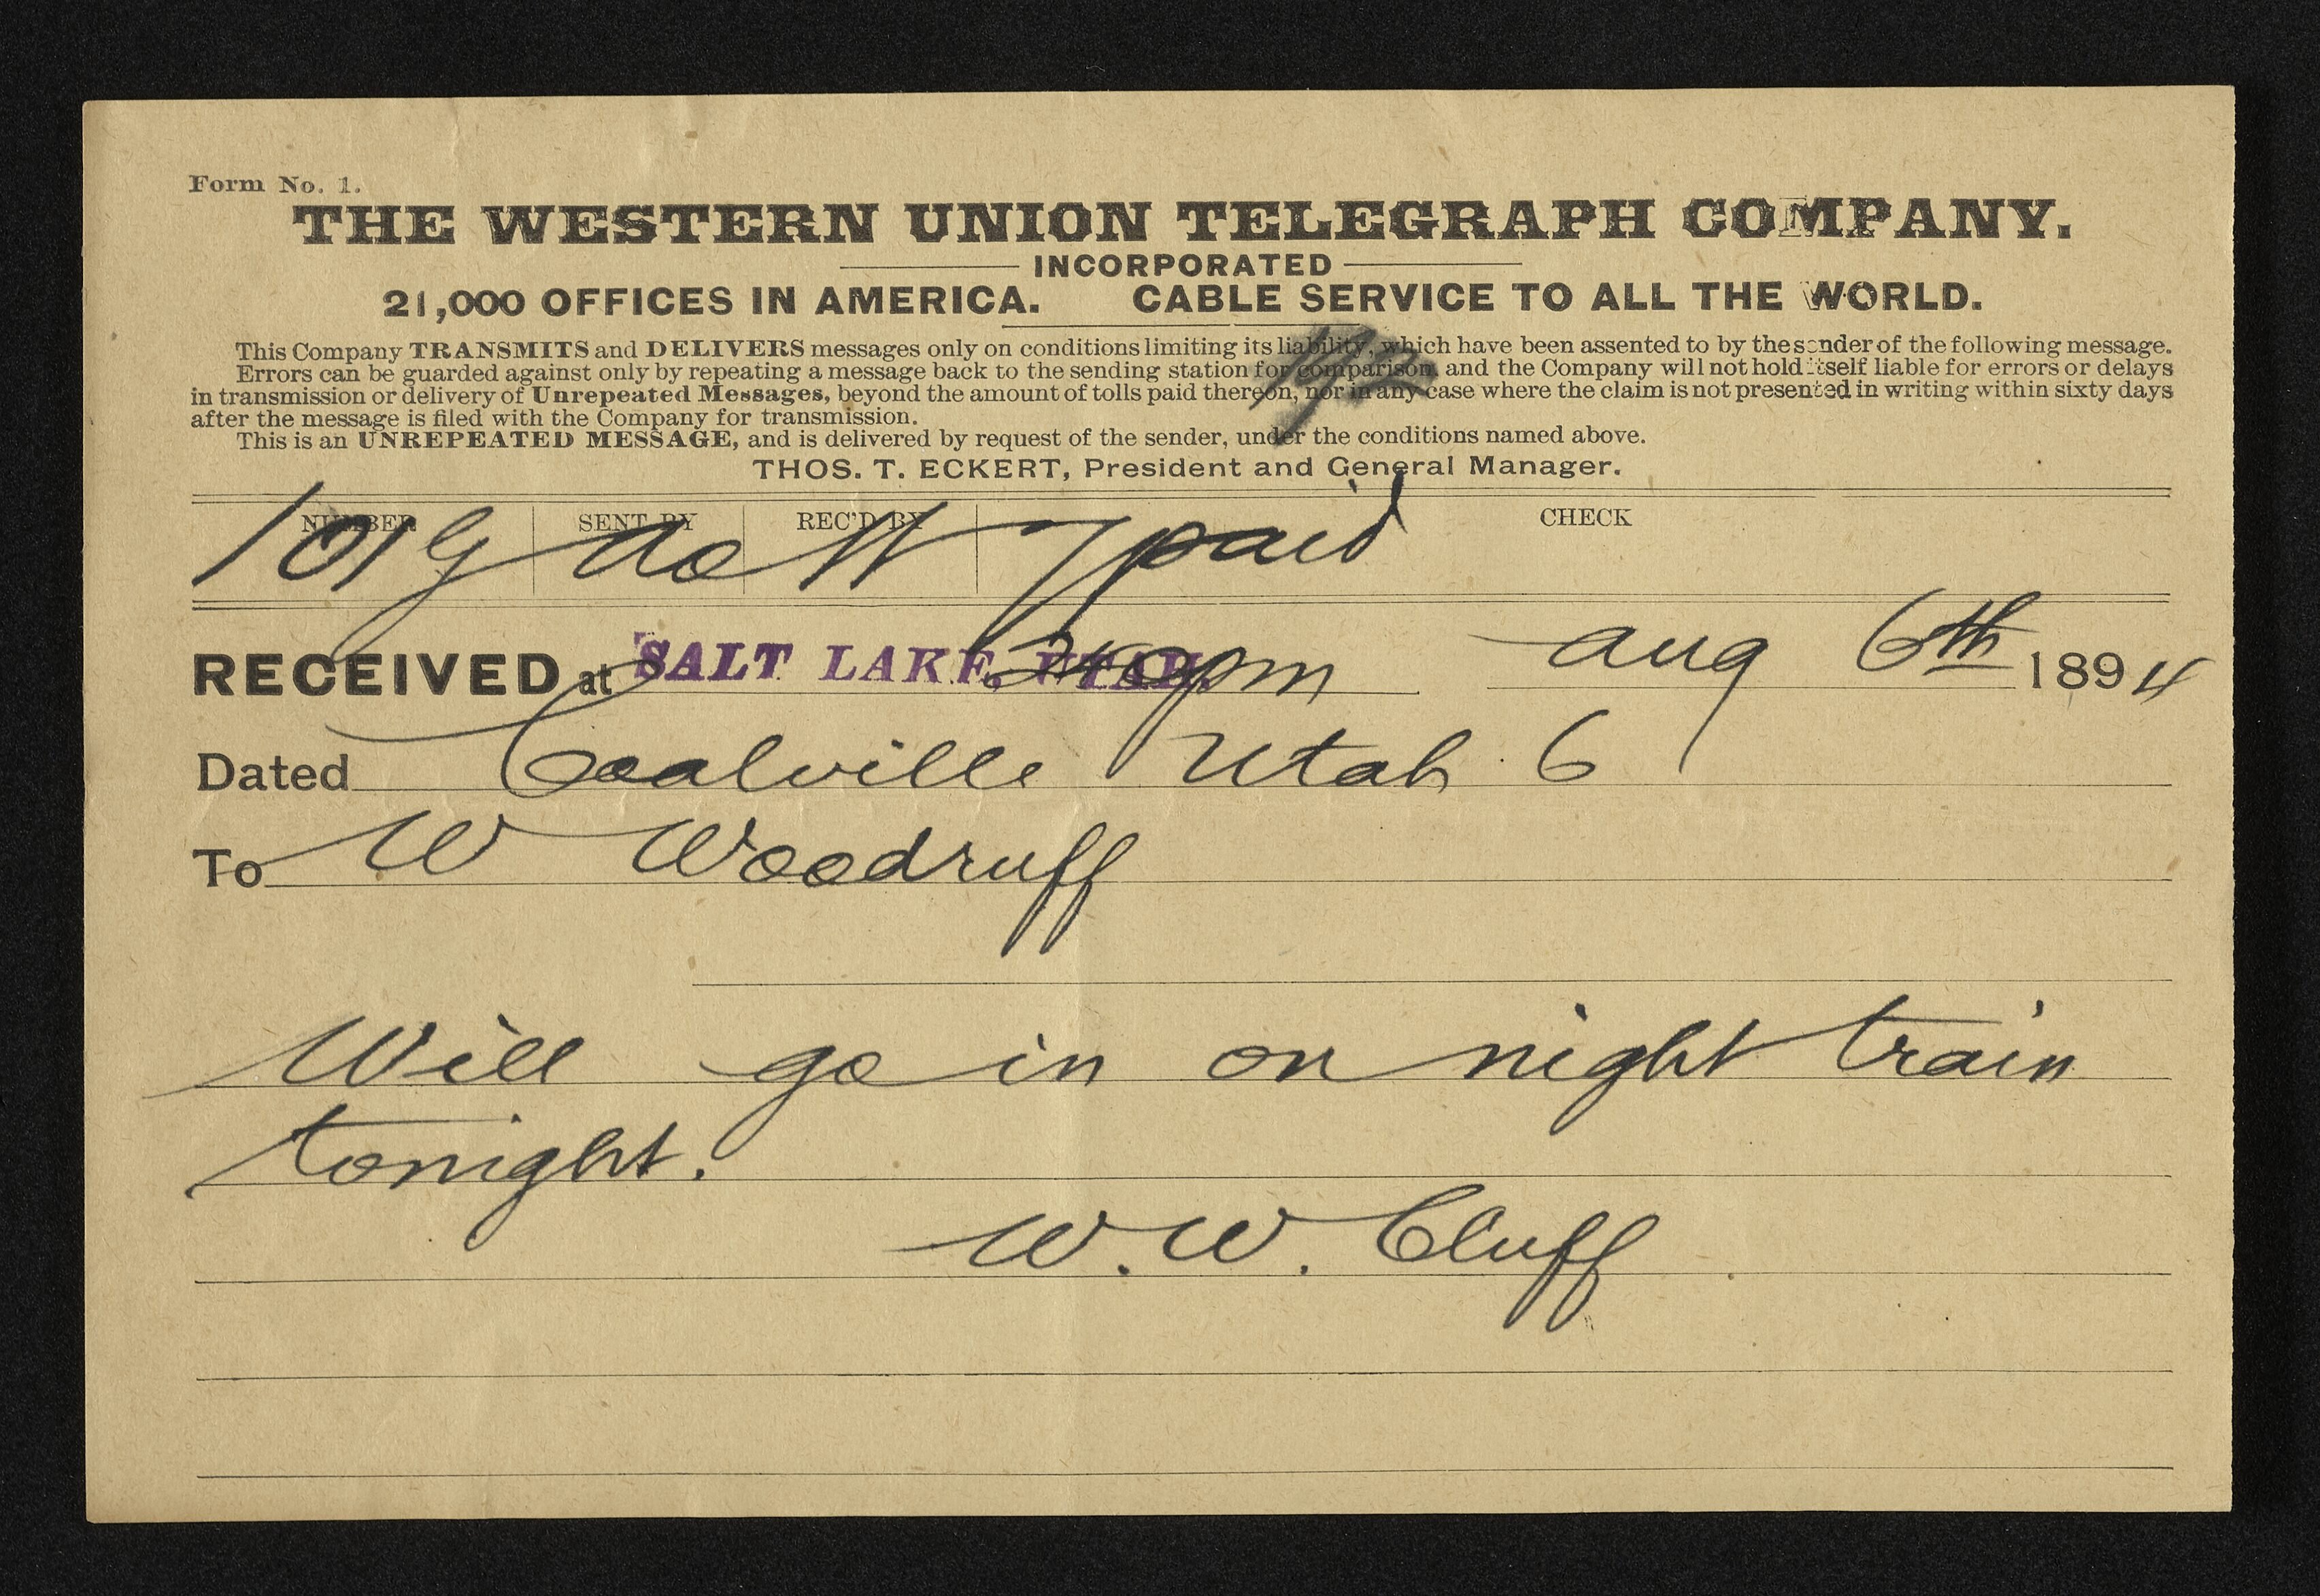 Form No. 1.
THE WESTERN UNION TELEGRAPH COMPANY.
INCORPORATED
21,000 OFFICES IN AMERICA. CABLE SERVICE TO ALL THE WORLD.
This Company TRANSMITS and DELIVERS messages only on conditions limiting its liability, which have been assented to by the sender of the following message.
Errors can be guarded against only by repeating a message back to the sending station for comparison, and the Company will not hold itself liable for errors or delays
in transmission or delivery of Unrepeated Messages, beyond the amount of tolls paid thereon, nor in any case where the claim is not presented in writing within sixty days
after the message is filed with the Company for transmission.
This is an UNREPEATED MESSAGE, and is delivered by request of the sender, under the conditions named above.
THOS. T. ECKERT, President and General Manager.
NUMBER SENT BY REC'D BY CHECK
7 paid
RECEIVED at SALT LAKE, UTAH. 240pm aug 6th 1894
Dated Coalville Utah 6
To W Woodruff
Will go in on night train
tonight.
W. W. Cluff